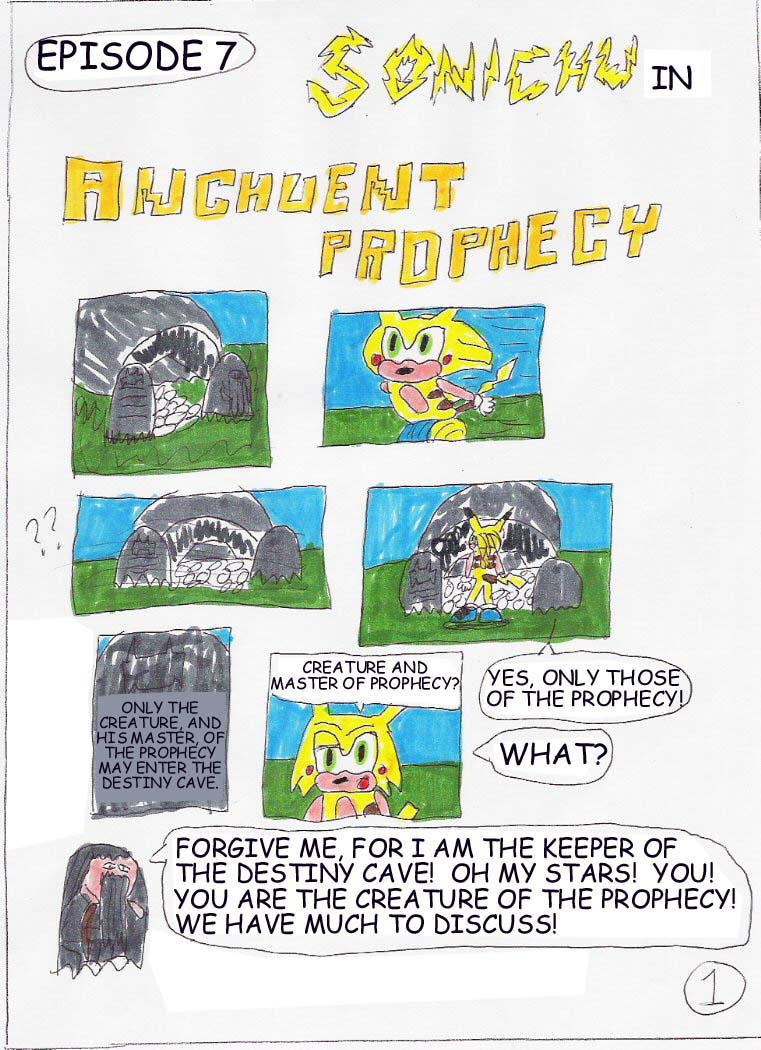 EPISODE 7
SONICHU IN
ANCHUENT
PROPHECY
??
ONLY THE
CREATURE, AND
HIS MASTER, OF
THE PROPHECY
MAY ENTER THE
DESTINY CAVE.
CREATURE AND
MASTER OF PROPHECY?
YES, ONLY THOSE
OF THE PROPHECY!
WHAT?
FORGIVE ME, FOR I AM THE KEEPER OF
THE DESTINY CAVE! OH MY STARS! YOU!
YOU ARE THE CREATURE OF THE PROPHECY!
WE HAVE MUCH TO DISCUSS!
1